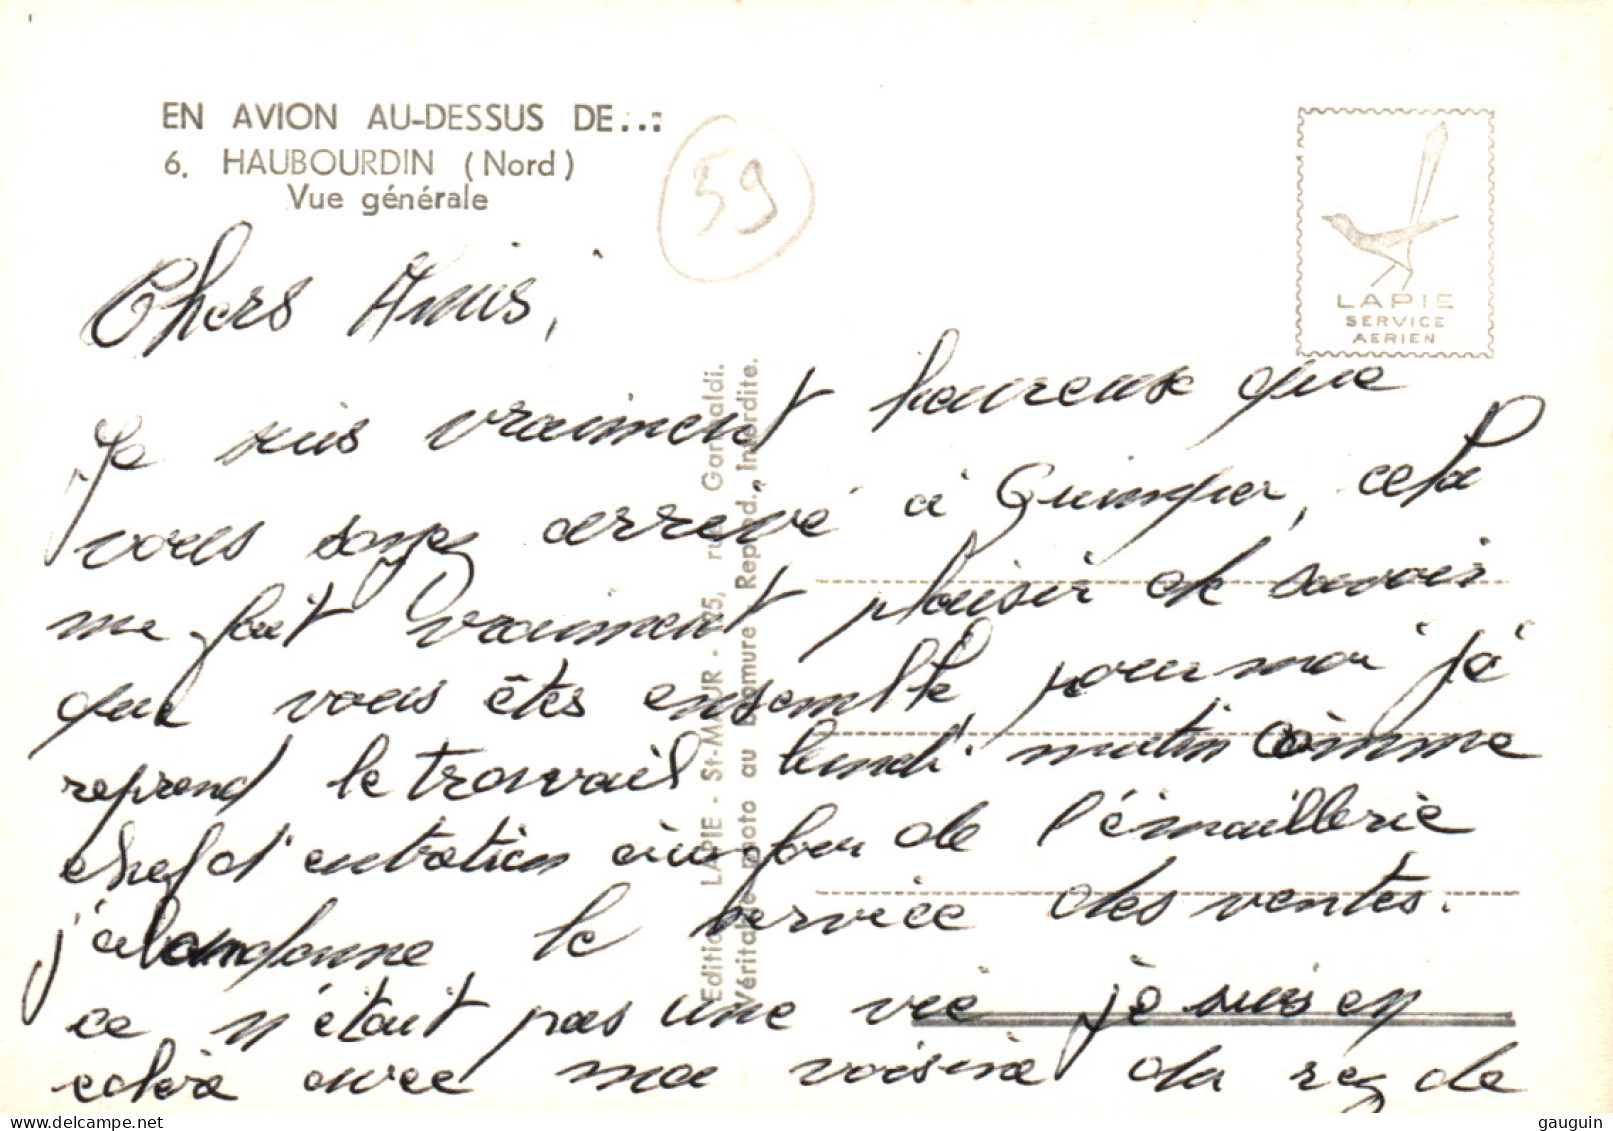 EN AVION AU-DESSUS DE...:
6. HAUBOURDIN (Nord)
Vue générale
59
LAPIE
SERVICE
AERIEN
Edition LAPIE - St-MAUR - 25, rue Garibaldi.
Véritable photo au Bromure Reprod. Interdite.
Chers Amis,
Je suis vraiment heureuse que
vous soyez arrivé à Quimper, cela
me fait vraiment plaisir de savoir
que vous êtes ensemble, pour moi je
reprend le travail lundi matin comme
chef d'entretien au four de l'émaillerie
j'abandonne le service des ventes.
ce n'était pas une vie je suis en
avec ma voisine du rez de
gauguin